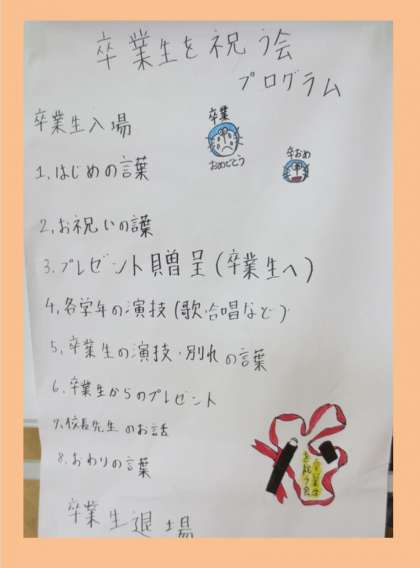 卒業生を祝う会
プログラム
卒業生入場
卒業
おめでとう
卒おめ
1.はじめの言葉
2.お祝いの言葉
3.プレゼント贈呈(卒業生へ)
4.各学年の演技(歌・合唱など)
5.卒業生の演技・別れの言葉
6.卒業生からのプレゼント
7.校長先生のお話
8.おわりの言葉
卒業生退場